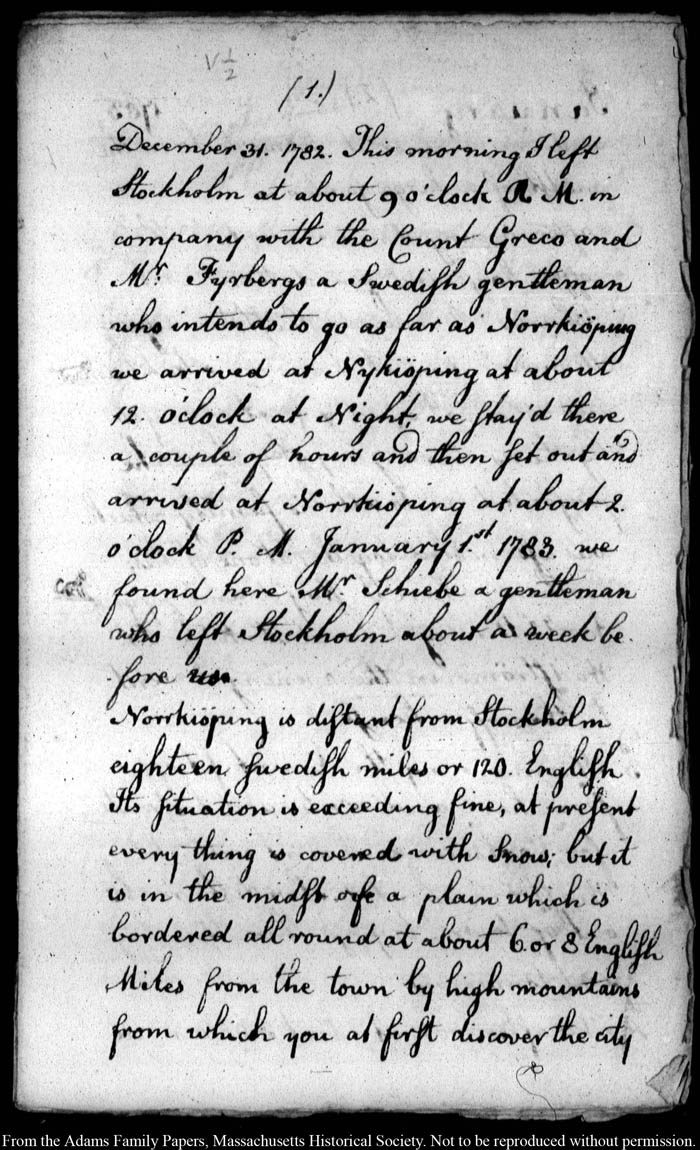 V 1/2
(1.)
December 31. 1782. This morning I left
Stockholm at about 9 o'clock A. M. in
company with the Count Greco and
Mr. Fyrbergs a Swedish gentleman
who intends to go as far as Norrkiöping
we arrived at Nykiöping at about
12. o'clock at Night, we stay'd there
a couple of hours and then set out and
arrived at Norrkiöping at about 2.
o'clock P. M. January 1.st 1783. we
found here Mr. Schiebe a gentleman
who left Stockholm about a week be-
fore us.
Norrkiöping is distant from Stockholm
eighteen swedish miles or 120. English.
Its situation is exceeding fine, at present
every thing is covered with Snow; but it
is in the midst of a plain which is
bordered all round at about 6 or 8 English
Miles from the town by high mountains
from which you at first discover the city
From the Adams Family Papers, Massachusetts Historical Society. Not to be reproduced without permission.